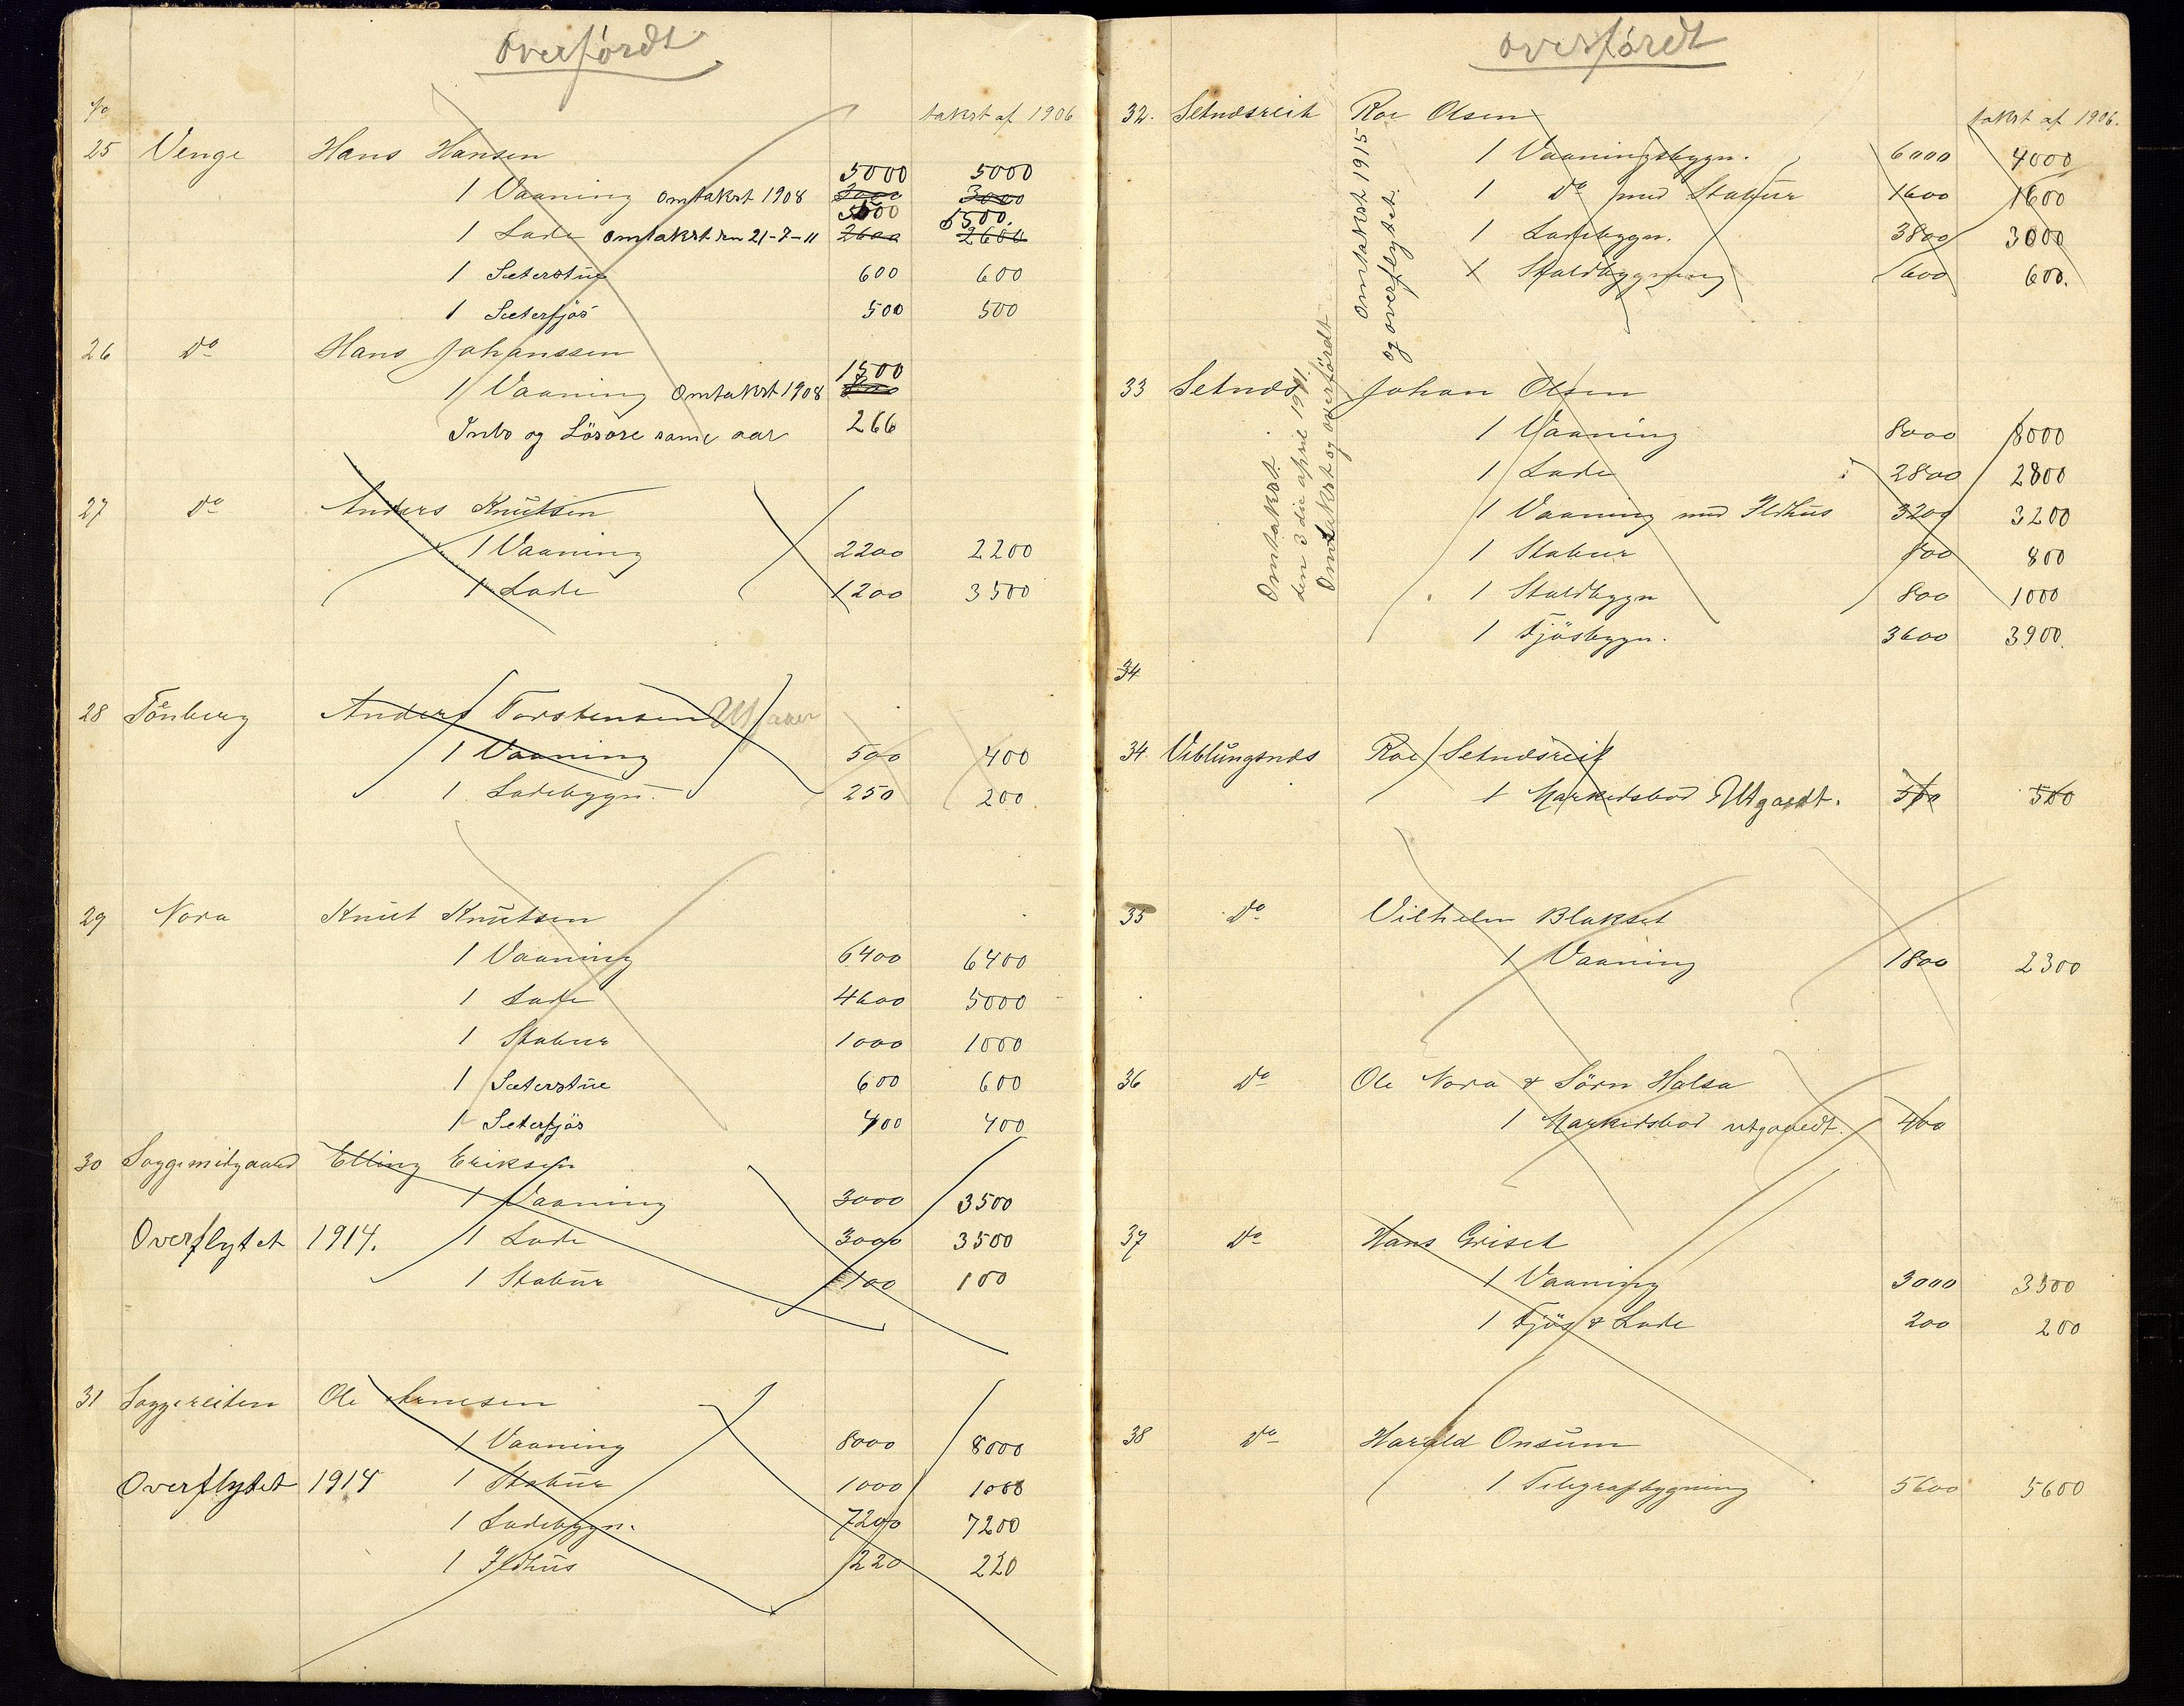 Overfördt
No takst af 1906
25 Venge Hans Hansen
5000 5000
1 Vaaning omtakst 1908 3000 3000
5500 5500.
1 Lade omtakst den 21-7-11 2600 2600
1 Sæterstue 600 600
1 Sæterfjös 500 500
26 Do Hans Johanssen
1500
1 Vaaning Omtakst 1908
Inbo og Lösöre same aar 266
27 Do Anders Knutsen
1 Vaaning 2200 2200
1 Lade 1200 3500
28 Tönberg Anders Torstensen
1 Vaaning 500 400
1 Ladebygn. 250 200
29 Nora Knut Knutsen
1 Vaaning 6400 6400
1 Lade 4600 5000
1 Stabur 1000 1000
1 Sæterstue 600 600
1 Seterfjös 400 400
30 Soggemidgaard Elling Eriksen
1 Vaaning 3000 3500
Overflytet 1914. 1 Lade 3000 3500
1 Stabur 100 100
31 Soggereiten Ole Arnesen
1 Vaaning 8000 8000
Overflytet 1914 1 Stabur 1000 1000
1 Ladebygn. 7200 7200
1 Ildhus 220 220
overfördt
takst af 1906.
32. Setnæsreit Roe Olsen
1 Vaaningsbygn. 6000 4000
1 Do med Stabur 1600 1600
1 Ladebygn. 3800 3000
1 Staldbygning 600 600.
Omtakst 1915
og overflytet.
33 Setnæs Johan Olsen
1 Vaaning 8000 8000
1 Lade 2800 2800
1 Vaaning med Ildhus 3200 3200
1 Stabur 800 800
1 Staldbygn 800 1000
1 Fjösbygn. 3600 3900.
Omtakst
den 3die april 1911.
Omtakst og overfördt
34
34 Veblungsnæs Roe Setnæsreit
1 Markedsbod Utgaadt. 500 500
35 Do Vilhelm Blakset
1 Vaaning 1800 2300
36 Do Ole Nora & Sörn Halsa
1 Markedsbod utgaaedt. 400
37 Do Hans Griset
1 Vaaning 3000 3500
1 Fjös & Lade 200 200
38 Do Harald Onsum
1 Telegrafbygning 5600 5600